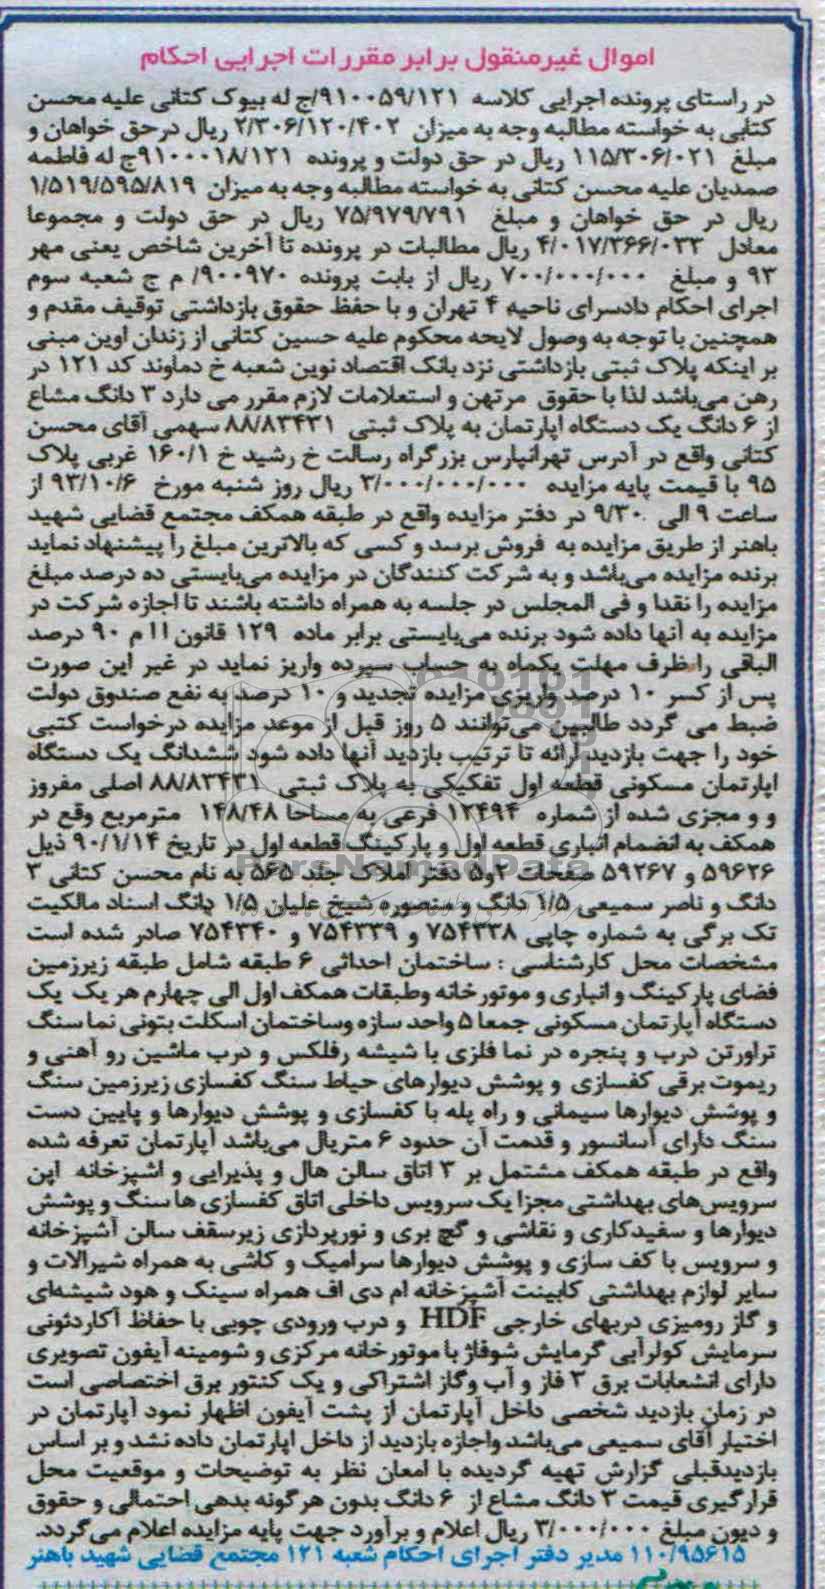 اموال غیرمنقول برابر مقررات اجرایی احکام
در راستای پرونده اجرایی کلاسه ۹۱۰۰۵۹/۱۲۱/ج له بیوک کتانی علیه محسن
کتابی به خواسته مطالبه وجه به میزان ۲/۳۰۶/۱۲۰/۴۰۲ ریال درحق خواهان و
مبلغ ۱۱۵/۳۰۶/۰۲۱ ریال در حق دولت و پرونده ۹۱۰۰۰۱۸/۱۲۱ج له فاطمه
صمدیان علیه محسن کتانی به خواسته مطالبه وجه به میزان ۱/۵۱۹/۵۹۵/۸۱۹
ریال در حق خواهان و مبلغ ۷۵/۹۷۹/۷۹۱ ریال در حق دولت و مجموعا
معادل ۴/۰۱۷/۳۶۶/۰۳۳ ریال مطالبات در پرونده تا آخرین شاخص یعنی مهر
۹۳ و مبلغ ۷۰۰/۰۰۰/۰۰۰ ریال از بابت پرونده ۹۰۰۹۷۰/ م ج شعبه سوم
اجرای احکام دادسرای ناحیه ۴ تهران و با حفظ حقوق بازداشتی توقیف مقدم و
همچنین با توجه به وصول لایحه محکوم علیه حسین کتانی از زندان اوین مبنی
بر اینکه پلاک ثبتی بازداشتی نزد بانک اقتصاد نوین شعبه خ دماوند کد ۱۲۱ در
رهن می‌باشد لذا با حقوق مرتهن و استعلامات لازم مقرر می دارد ۳ دانگ مشاع
از ۶ دانگ یک دستگاه اپارتمان به پلاک ثبتی ۸۸/۸۳۴۳۱ سهمی آقای محسن
کتانی واقع در آدرس تهرانپارس بزرگراه رسالت خ رشید خ ۱۶۰/۱ غربی پلاک
۹۵ با قیمت پایه مزایده ۳/۰۰۰/۰۰۰/۰۰۰ ریال روز شنبه مورخ ۹۳/۱۰/۶ از
ساعت ۹ الی ۹/۳۰ در دفتر مزایده واقع در طبقه همکف مجتمع قضایی شهید
باهنر از طریق مزایده به فروش برسد و کسی که بالاترین مبلغ را پیشنهاد نماید
برنده مزایده می‌باشد و به شرکت کنندگان در مزایده می‌بایستی ده درصد مبلغ
مزایده را نقدا و فی المجلس در جلسه به همراه داشته باشند تا اجازه شرکت در
مزایده به آنها داده شود برنده می‌بایستی برابر ماده ۱۲۹ قانون اا م ۹۰ درصد
الباقی را ظرف مهلت یکماه به حساب سپرده واریز نماید در غیر این صورت
پس از کسر ۱۰ درصد واریزی مزایده تجدید و ۱۰ درصد به نفع صندوق دولت
ضبط می گردد طالبین می‌توانند ۵ روز قبل از موعد مزایده درخواست کتبی
خود را جهت بازدید ارائه تا ترتیب بازدید آنها داده شود ششدانگ یک دستگاه
اپارتمان مسکونی قطعه اول تفکیکی به پلاک ثبتی ۸۸/۸۳۴۳۱ اصلی مفروز
و و مجزی شده از شماره ۱۲۴۹۴ فرعی به مساحا ۱۴۸/۴۸ مترمربع وقع در
همکف به انضمام انباری قطعه اول و پارکینگ قطعه اول در تاریخ ۹۰/۱/۱۴ ذیل
۵۹۶۲۶ و ۵۹۲۶۷ صفحات ۲و۵ دفتر املاک جلد ۵۶۵ به نام محسن کتانی ۳
دانگ و ناصر سمیعی ۱/۵ دانگ و منصوره شیخ علیان ۱/۵ دانگ اسناد مالکیت
تک برگی به شماره چاپی ۷۵۴۳۳۸ و ۷۵۴۳۳۹ و ۷۵۴۳۴۰ صادر شده است
مشخصات محل کارشناسی : ساختمان احداثی ۶ طبقه شامل طبقه زیرزمین
فضای پارکینگ و انباری و موتورخانه وطبقات همکف اول الی چهارم هر یک یک
دستگاه آپارتمان مسکونی جمعا ۵ واحد سازه وساختمان اسکلت بتونی نما سنگ
تراورتن درب و پنجره در نما فلزی با شیشه رفلکس و درب ماشین رو آهنی و
ریموت برقی کفسازی و پوشش دیوارهای حیاط سنگ کفسازی زیرزمین سنگ
و پوشش دیوارها سیمانی و راه پله با کفسازی و پوشش دیوارها و پایین دست
سنگ دارای آسانسور و قدمت آن حدود ۶ متریال می‌باشد آپارتمان تعرفه شده
واقع در طبقه همکف مشتمل بر ۳ اتاق سالن هال و پذیرایی و اشپزخانه اپن
سرویس‌های بهداشتی مجزا یک سرویس داخلی اتاق کفسازی ها سنگ و پوشش
دیوارها و سفیدکاری و نقاشی و گچ بری و نورپردازی زیرسقف سالن آشپزخانه
و سرویس با کف سازی و پوشش دیوارها سرامیک و کاشی به همراه شیرالات و
سایر لوازم بهداشتی کابینت آشپزخانه ام دی اف همراه سینک و هود شیشه‌ای
و گاز رومیزی دربهای خارجی HDF و درب ورودی چوبی با حفاظ آکاردئونی
سرمایش کولرآبی گرمایش شوفاژ با موتورخانه مرکزی و شومینه آیفون تصویری
دارای انشعابات برق ۳ فاز و آب وگاز اشتراکی و یک کنتور برق اختصاصی است
در زمان بازدید شخصی داخل آپارتمان از پشت آیفون اظهار نمود آپارتمان در
اختیار آقای سمیعی می‌باشد واجازه بازدید از داخل اپارتمان داده نشد و بر اساس
بازدیدقبلی گزارش تهیه گردیده با امعان نظر به توضیحات و موقعیت محل
قرارگیری قیمت ۳ دانگ مشاع از ۶ دانگ بدون هرگونه بدهی احتمالی و حقوق
و دیون مبلغ ۳/۰۰۰/۰۰۰ ریال اعلام و برآورد جهت پایه مزایده اعلام می‌گردد.
۱۱۰/۹۵۶۱۵ مدیر دفتر اجرای احکام شعبه ۱۲۱ مجتمع قضایی شهید باهنر
ParsNamadData